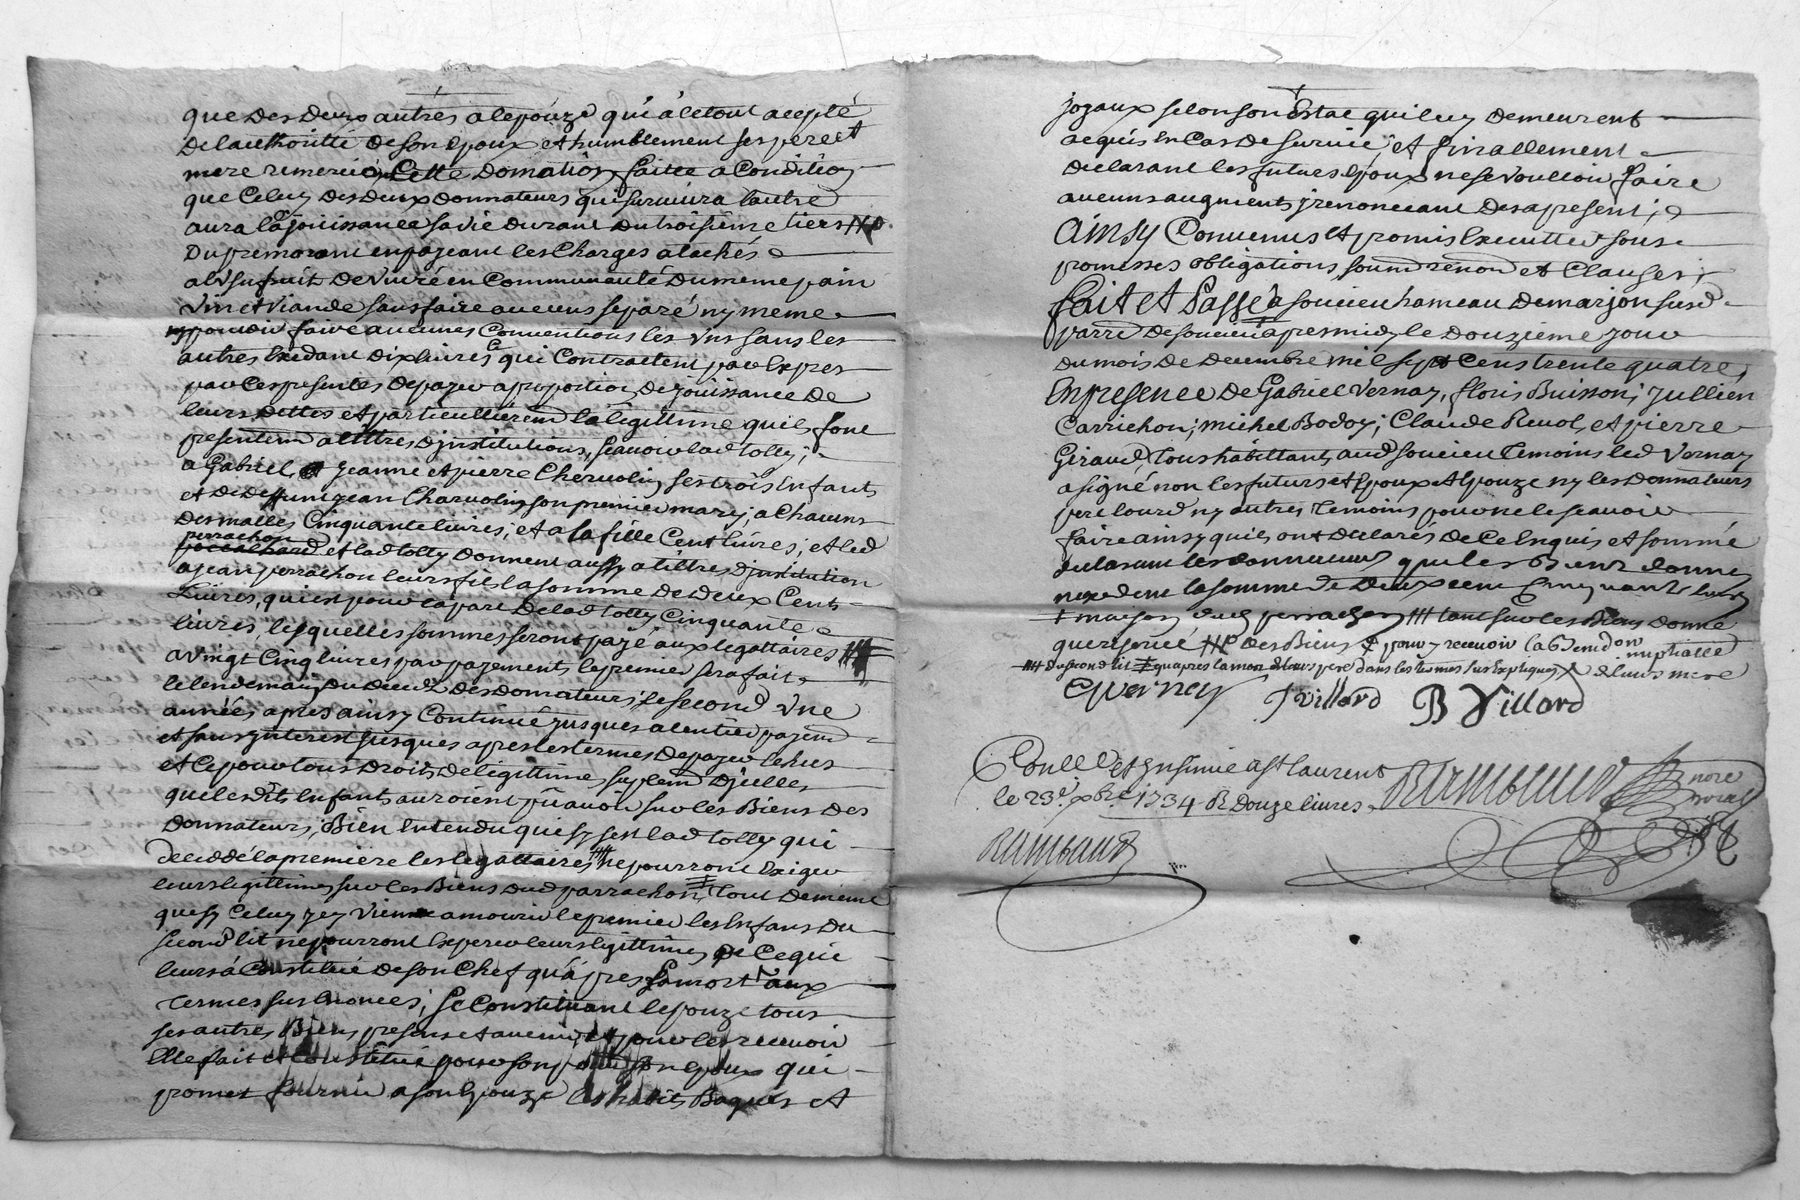 que des deux autres a lepouze qui à letout acepté
de lauthoritté de son epoux et humblement ses pere et
mere remercié, Cette donnation faitte a Condition
que Celuy des deux donnateurs qui survivra lautre
aura la jouissance sa vie durant du troisieme tiers
du premorant en payant les Charges atachés
a lusufruit de vivre en Communauté du meme pain
vin et viande sans faire aucuns separé ny meme
pouvoir faire aucunes Conventions les uns sans les
autres Exedant dix livres Ce qui Contractent par Expres
par Ces presentes de payer a proportion de jouissance de
leurs dettes et particulliérem la legittime quils font
presentem a tittres djnstitutions, scavoir lad tolly;
a Gabriel, jeanne et pierre Chervolin ses trois Enfants
et de deffunt jean Charvolin son premier mary; a Chacuns
des malles Cinquante livres; et a la fille Cent livres; et led
perrachon et lad tolly donnent aussy a tittres djnstitution
a jean perrachon leurs fils la somme de deux Cents
Livres, qui est pour la part de lad tolly Cinquante
livres, lesquelles sommes seront payé aux legattaires
a vingt Cinq livres par payement le premier sera fait
le lendemain du deced des donnateurs; le second une
année apres ainsy Continué jusques a lentier payem
et sans jnterest jusques apres les termes de payer Echus
et Ce pour tous droits de legittime suplem djcelles
que lesdits Enfants auroient pû avoir sur les Biens des
donnateurs; Bien Entendu que sy sest lad tolly qui
decedde la premiere les legattaires ne pourront Exiger
leurs legittimes sur les Biens dud parrachon, tout de meme
que sy Celuy jcy vienne a mourir le premier les Enfans du
second lit ne pourront Esperer leurs legittimes de Ce qui
leurs à Constitué de son Chef qu'apres sa mort aux
termes sus Enonces; se Constituant lepouze tous
ses autres Biens presens et avenir, et pour les recevoir
Elle fait et Constitue pour son son epoux qui
promet fournir a son Epouze les habits Bagues et
joyaux selon son Estat qui luy demeurent
acquis En Cas de survie, et finallement
declarant les futurs Epoux ne se voulloir faire
aucuns augments y renoncant des a present;
Ainsy Convenus et promis Executter sous
promesses obligations soum renon et Clauses;
fait et Passé a soucieu hameau de marjon susd
parre de soucieu apres midy le douzieme jour
du mois de decembre mil sept Cens trente quatre,
En presence de Gabriel Vernay, floris Buisson; jullien
Carrichon; michel Bodoy; Claude Revol, et pierre
Giraud, tous habittants aud soucieu temoins led Vernay
a signé non les futurs et Epoux et Epouze ny les donnateurs
pere lourd ny autres temoins pour ne le scavoir
faire ainsy quils ont declarés de Ce Enquis et sommé
declarant les donnateurs que les Biens donnes
nexedent la somme de deux cent Cinquante livres
maison dud perrachon tout sur les Biens donné
des Biens pour y recevoir la Bened on nuptialle
du second lit quapres la mort de leurs pere dans les termes sus Expliqués de leurs mere
GVerney J Villard B Villard
Conllé et jnsinué a st laurent
le 23e xbre 1734 R douze livres
Rambaud nore royal
Rambaud